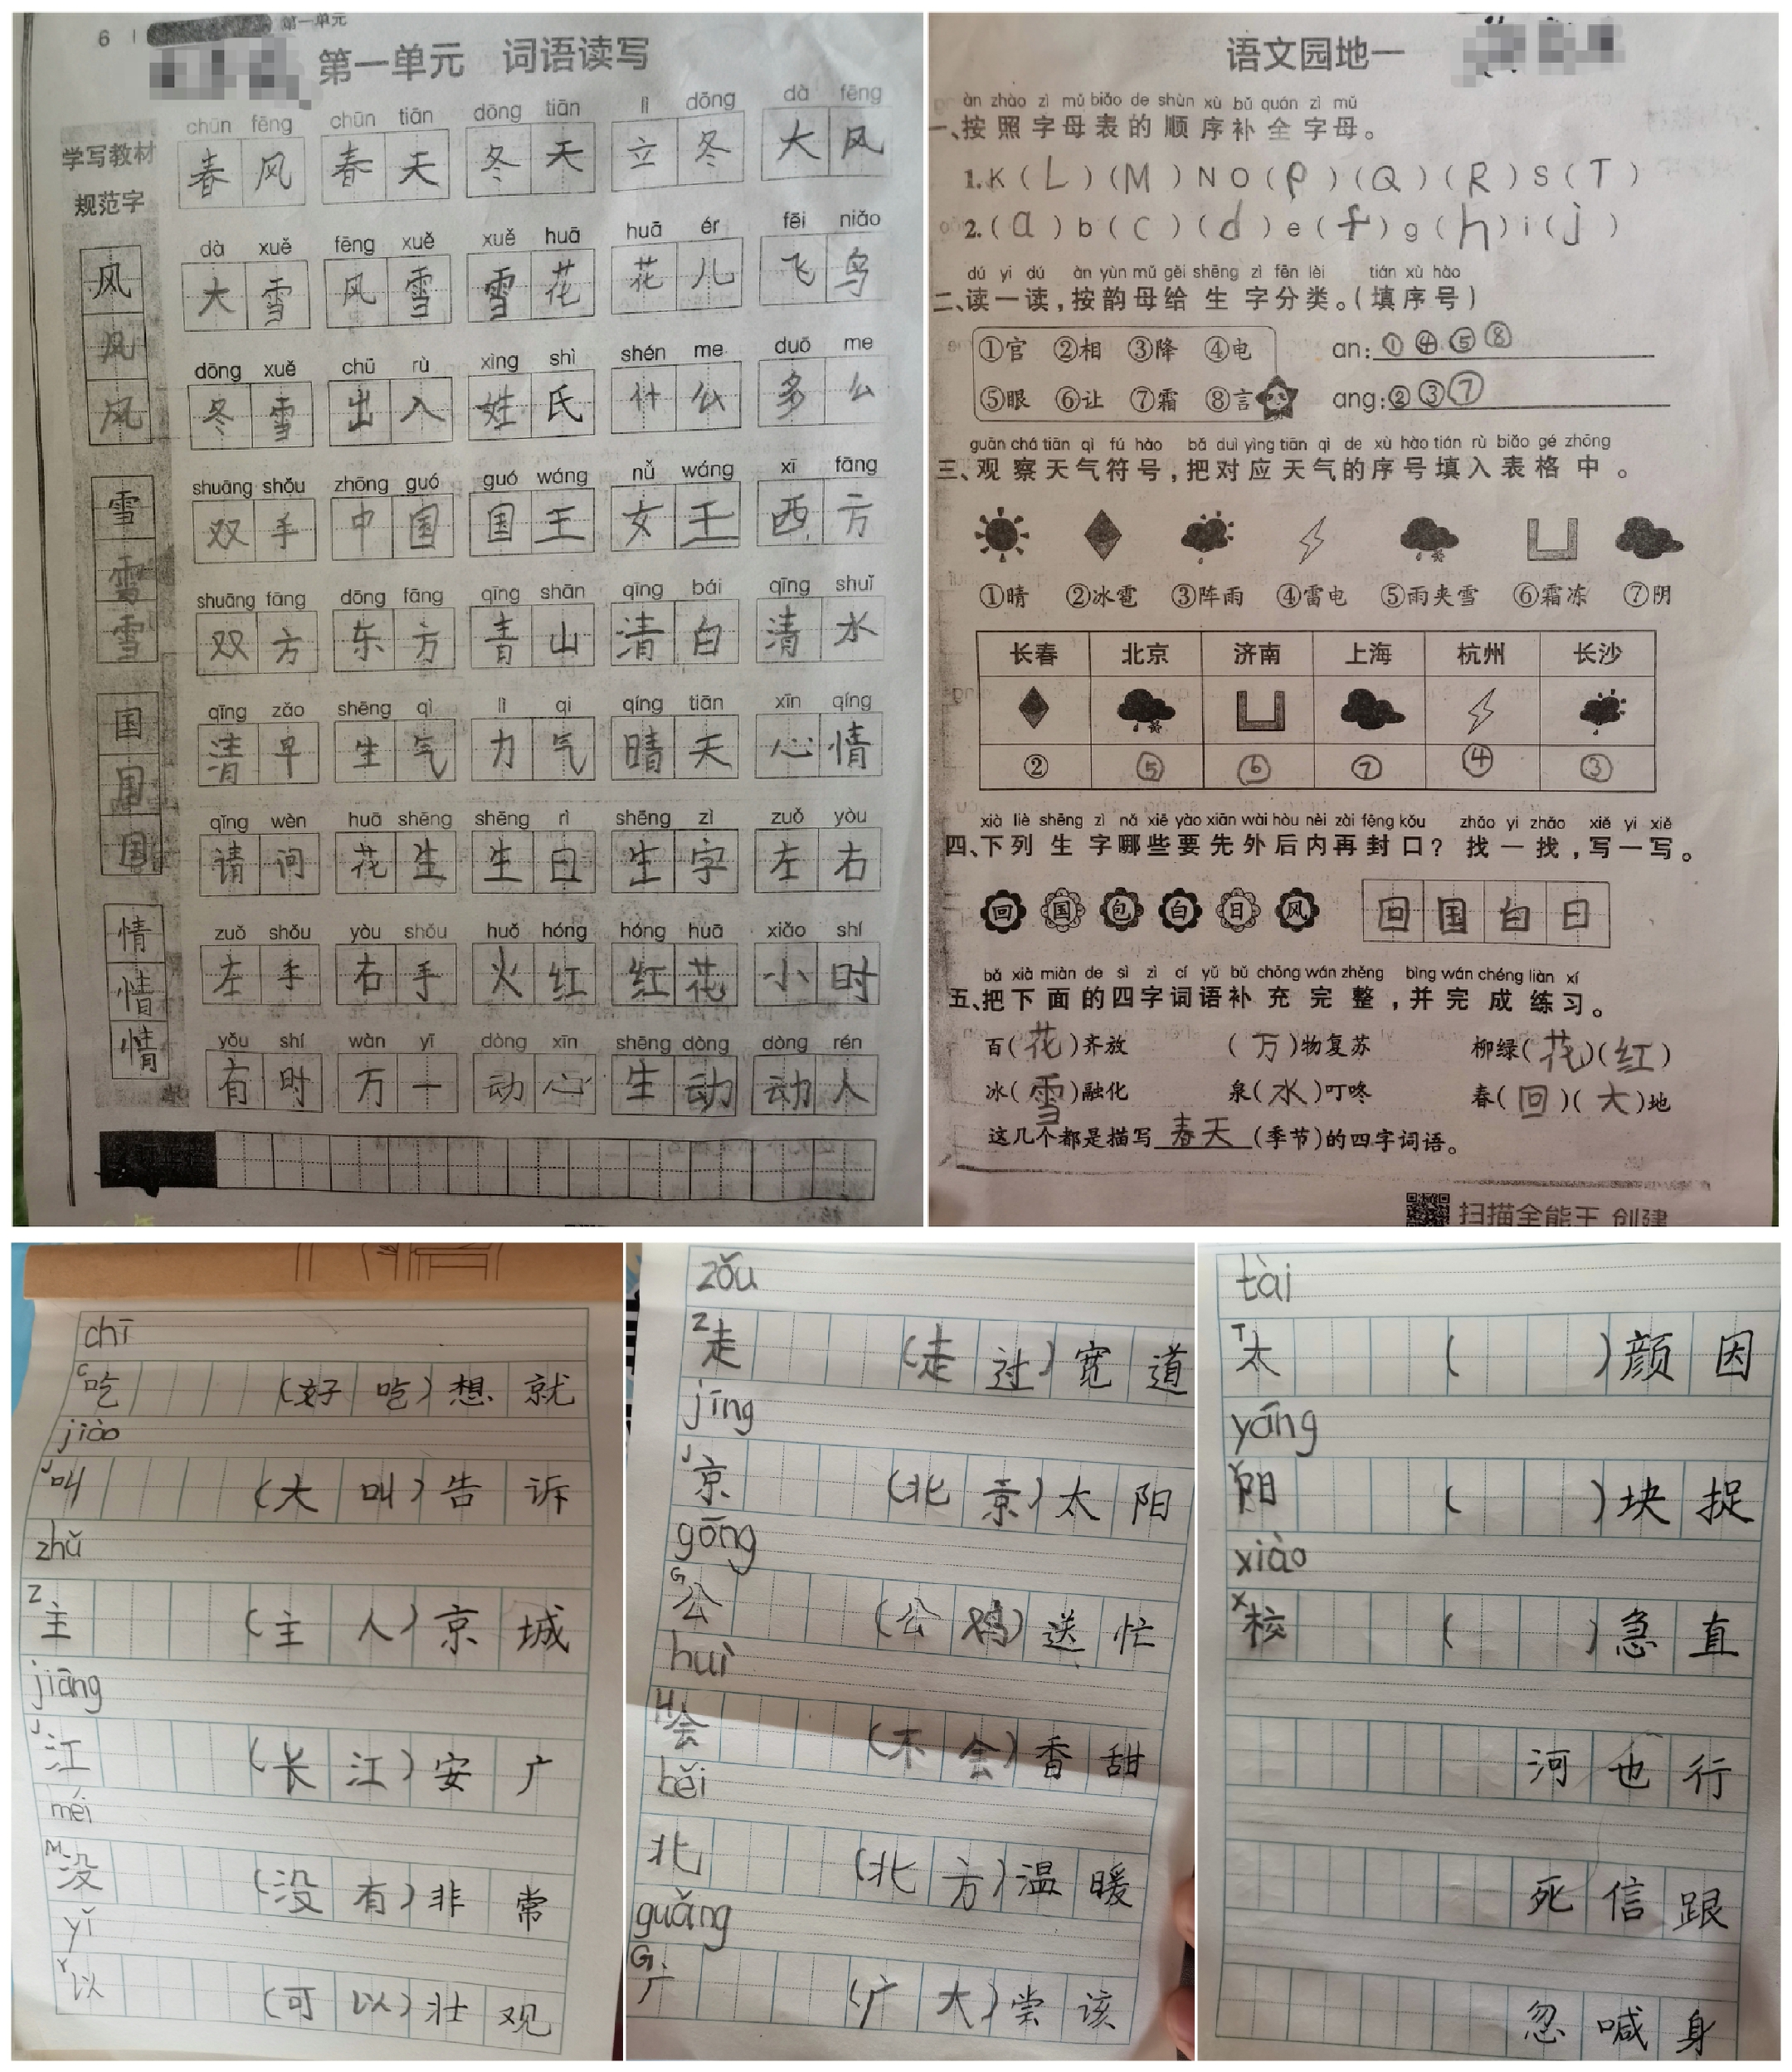 6 第一单元
第一单元 词语读写
学写教材
规范字
风
风
风
雪
雪
雪
国
国
国
情
情
情
chūn fēng chūn tiān dōng tiān lì dōng dà fēng
春风 春天 冬天 立冬 大风
dà xuě fēng xuě xuě huā huā ér fēi niǎo
大雪 风雪 雪花 花儿 飞鸟
dōng xuě chū rù xìng shì shén me duō me
冬雪 出入 姓氏 什么 多么
shuāng shǒu zhōng guó guó wáng nǚ wáng xī fāng
双手 中国 国王 女王 西方
shuāng fāng dōng fāng qīng shān qīng bái qīng shuǐ
双方 东方 青山 清白 清水
qīng zǎo shēng qì lì qi qíng tiān xīn qíng
清早 生气 力气 晴天 心情
qǐng wèn huā shēng shēng rì shēng zì zuǒ yòu
请问 花生 生日 生字 左右
zuǒ shǒu yòu shǒu huǒ hóng hóng huā xiǎo shí
左手 右手 火红 红花 小时
yǒu shí wàn yī dòng xīn shēng dòng dòng rén
有时 万一 动心 生动 动人
语文园地一
àn zhào zì mǔ biǎo de shùn xù bǔ quán zì mǔ
一、按照字母表的顺序补全字母。
1. K ( L ) ( M ) N O ( P ) ( Q ) ( R ) S ( T )
2. ( a ) b ( c ) ( d ) e ( f ) g ( h ) i ( j )
dú yi dú àn yùn mǔ gěi shēng zì fēn lèi tián xù hào
二、读一读，按韵母给生字分类。（填序号）
①官 ②相 ③降 ④电 an: ①④⑤⑧
⑤眼 ⑥让 ⑦霜 ⑧言 ang: ②③⑦
guān chá tiān qì fú hào bǎ duì yìng tiān qì de xù hào tián rù biǎo gé zhōng
三、观察天气符号，把对应天气的序号填入表格中。
①晴 ②冰雹 ③阵雨 ④雷电 ⑤雨夹雪 ⑥霜冻 ⑦阴
长春 北京 济南 上海 杭州 长沙
② ⑤ ⑥ ⑦ ④ ③
xià liè shēng zì nǎ xiē yào xiān wài hòu nèi zài fēng kǒu zhǎo yi zhǎo xiě yi xiě
四、下列生字哪些要先外后内再封口？找一找，写一写。
回 国 包 白 日 风 回 国 白 日
bǎ xià miàn de sì zì cí yǔ bǔ chōng wán zhěng bìng wán chéng liàn xí
五、把下面的四字词语补充完整，并完成练习。
百（花）齐放 （万）物复苏 柳绿（花）（红）
冰（雪）融化 泉（水）叮咚 春（回）（大）地
这几个都是描写春天（季节）的四字词语。
扫描全能王 创建
chī
C 吃 （好吃）想就
jiào
J 叫 （大叫）告诉
zhǔ
Z 主 （主人）京城
jiāng
J 江 （长江）安广
méi
M 没 （没有）非常
yǐ
Y 以 （可以）壮观
zǒu
Z 走 （走过）宽道
jīng
J 京 （北京）太阳
gōng
G 公 （公鸡）送忙
huì
H 会 （不会）香甜
běi
北 （北方）温暖
guǎng
G 广 （广大）尝该
tài
T 太 （ ）颜因
yáng
Y 阳 （ ）块捉
xiào
X 校 （ ）急直
河也行
死信跟
忽喊身